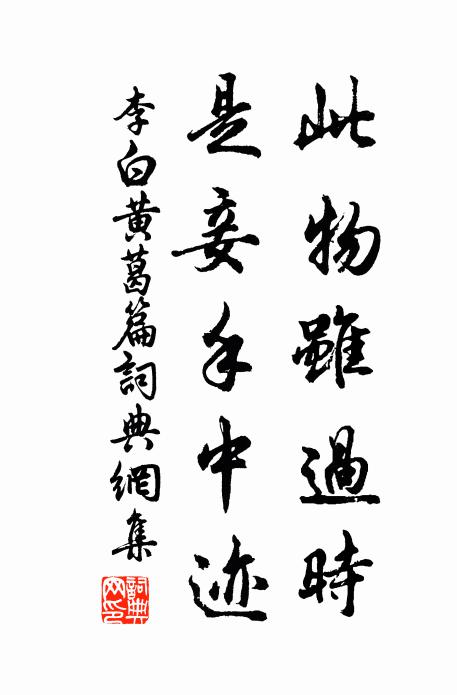 此物雖過時
是妾手中迹
李白黃葛篇詞典網集
詞典網印